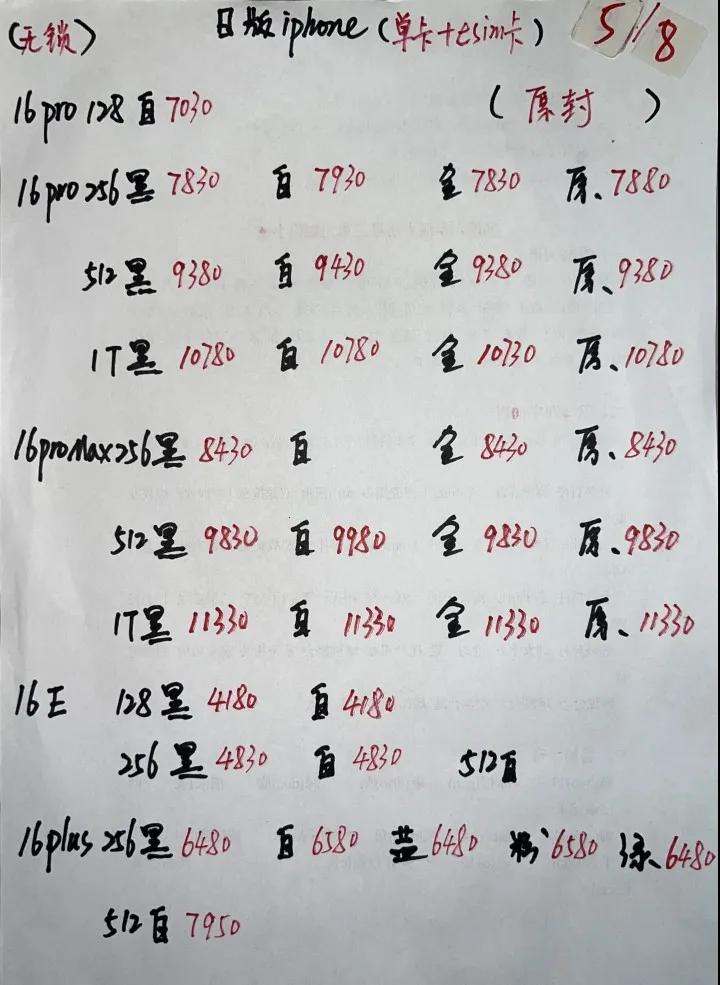 (无锁) 日版iphone(单卡+esim卡) 5/8
16pro 128 白 7030 (原封)
16pro 256 黑 7830 白 7930 金 7830 原、7880
512 黑 9380 白 9430 金 9380 原、9380
1T 黑 10780 白 10780 金 10730 原、10780
16proMax 256 黑 8430 白 金 8430 原、8430
512 黑 9830 白 9980 金 9830 原、9830
1T 黑 11330 白 11330 金 11330 原、11330
16E 128 黑 4180 白 4180
256 黑 4830 白 4830 512白
16plus 256 黑 6480 白 6580 蓝 6480 粉 6580 绿、6480
512 白 7950